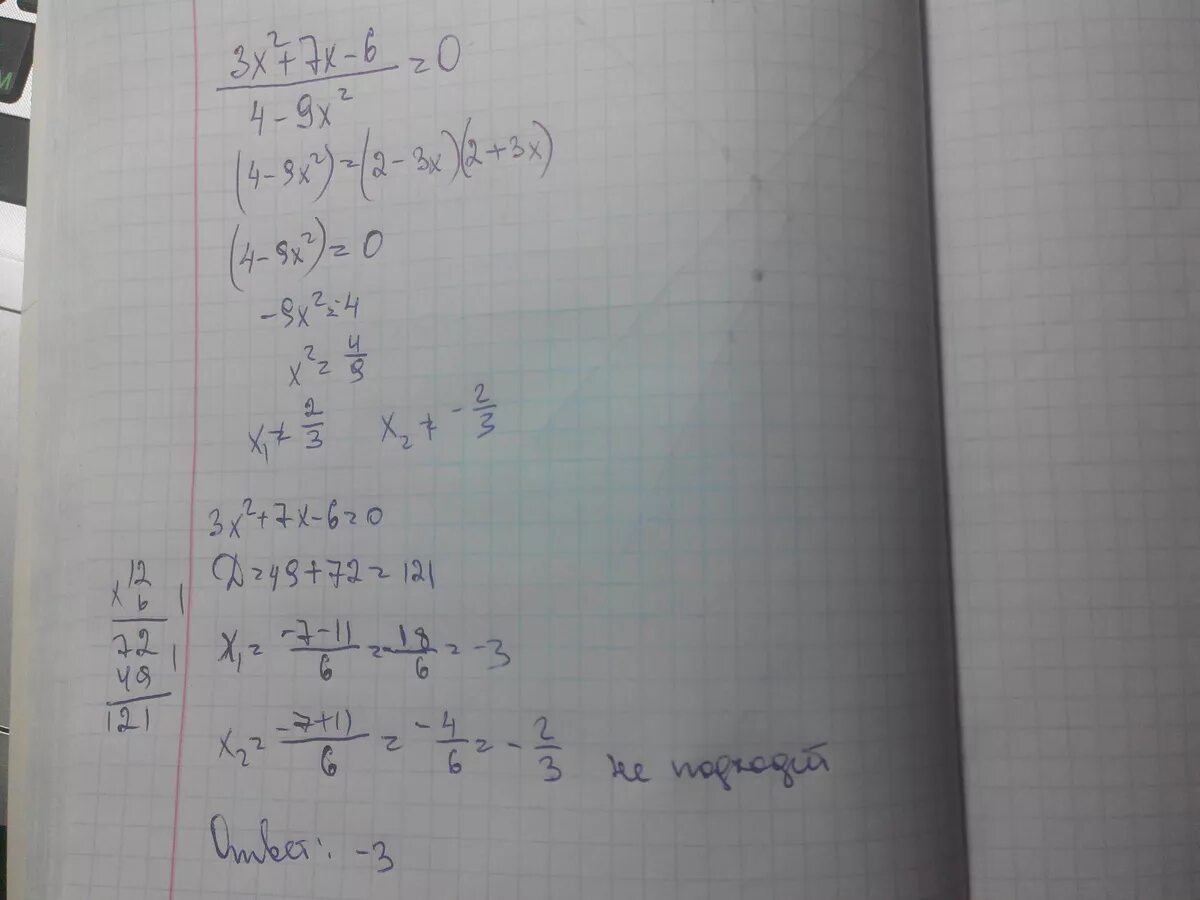 3x²+7x-6 / 4-9x² = 0
(4-9x²)=(2-3x)(2+3x)
(4-9x²)=0
-9x²=-4
x²=4/9
x₁≠2/3 x₂≠-2/3
3x²+7x-6=0
D=49+72=121
x₁=(-7-11)/6=-18/6=-3
x₂=(-7+11)/6=-4/6=-2/3 не подходит
Ответ: -3
12
x 6 1
72
49 1
121